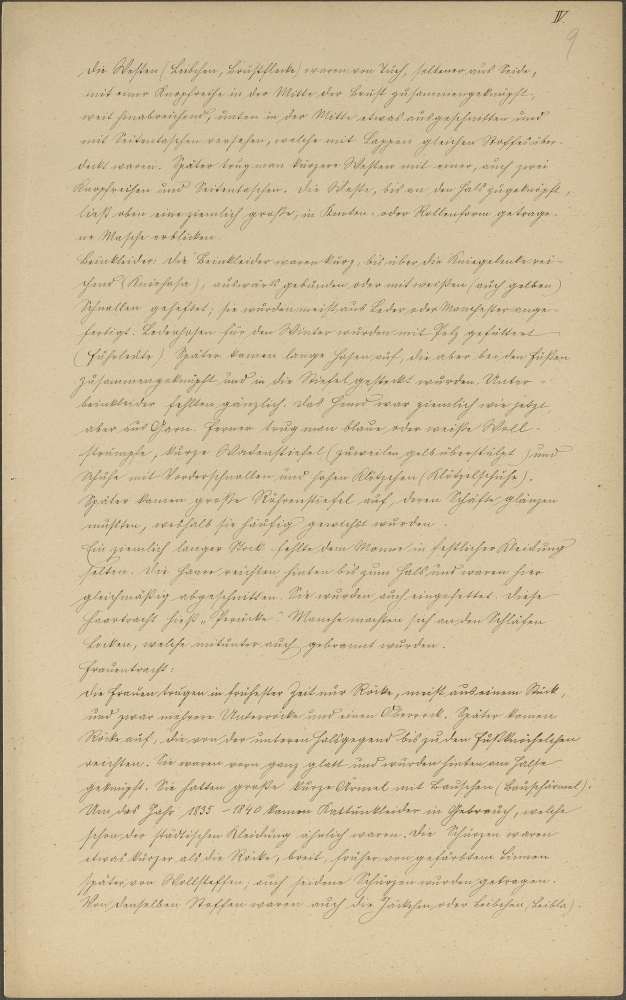 IV.
9
Die Westen (Leibchen, Brustflecke) waren von Tuch, seltener aus Seide,
mit einer Knopfreihe in der Mitte der Brust zusammengeknöpft,
weit hinabreichend, unten in der Mitte etwas ausgeschnitten und
mit Seitentaschen versehen, welche mit Lappen gleichen Stoffes über-
deckt waren. Später trug man kürzere Westen mit einer, auch zwei
Knopfreihen und Seitentaschen. Die Weste, bis an den Hals zugeknöpft,
ließ oben eine ziemlich große, in Knoten- oder Rollenform getrage-
ne Masche erblicken.
Beinkleider: Die Beinkleider waren kurz, bis über die Kniegelenke rei-
chend (Kniehosa), auswärts gebunden oder mit weißen (auch gelben)
Schnallen geheftet; sie wurden meist aus Leder oder Manchester ange-
fertigt. Lederhosen für den Winter wurden mit Pelz gefüttert
Später kamen lange Hosen auf, die aber bei den Füßen
zusammengeknüpft und in die Stiefel gesteckt wurden. Unter-
beinkleider fehlten gänzlich. Das Hemd war ziemlich wie jetzt,
aber aus Garn. Ferner trug man blaue oder weiße Woll-
strümpfe, kurze Wadenstiefel (zuweilen gelb überstülpt) und
Schuhe mit Vorderschnallen und hohen Klötzchen (Klötzelschuhe).
Später kamen große Röhrenstiefel auf, deren Schäfte glänzen
mußten, weshalb sie häufig gewichst wurden.
Ein ziemlich langer Stock fehlte dem Manne in festlicher Kleidung
selten. Die Haare reichten hinten bis zum Hals und waren hier
gleichmäßig abgeschnitten. Sie wurden auch eingefettet. Diese
Haartracht hieß „Perücke“. Manche machten sich an den Schläfen
Locken, welche mitunter auch gebrannt wurden.
Frauentracht:
Die Frauen trugen in frühester Zeit nur Röcke, meist aus einem Stück,
und zwar mehrere Unterröcke und einen Oberrock. Später kamen
Röcke auf, die von der unteren Halsgegend bis zu den Fußknöchelchen
reichten. Sie waren vorn ganz glatt und wurden hinten am Halse
geknüpft. Sie hatten große kurze Ärmel mit Bauschen (Bauschärmel).
Um das Jahr 1835-1840 kamen Kattunkleider in Gebrauch, welche
schon der städtischen Kleidung ähnlich waren. Die Schürzen waren
etwas kürzer als die Röcke, breit, früher von gefärbtem Linnen
später von Wollstoffen; auch seidene Schürzen wurden getragen.
Von denselben Stoffen waren auch die Jäckchen oder Leibchen (Leibla).